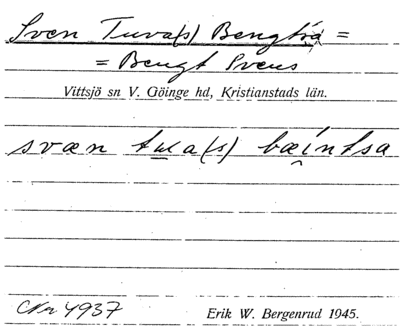 Sven Tuva(s) Bengtsa =
= Bengt Svens
Vittsjö sn V. Göinge hd, Kristianstads län.
svæn tua(s) bæintsa
CNr 4937 Erik W. Bergenrud 1945.